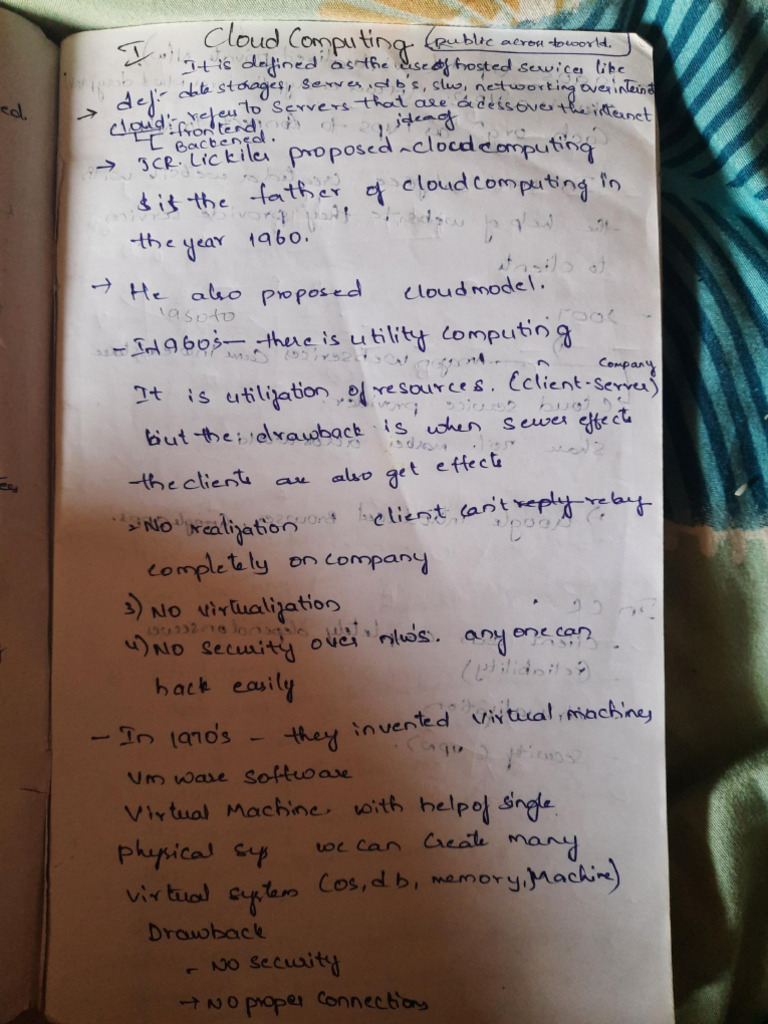 I Cloud Computing (public across to world.
It is defined as the use of hosted services like
def:- data storages, server, d,b's, s/w, networking over internet
→ cloud:- refers to servers that are access over the internet
frontend;
Backened.
→ JCR. Lickiler proposed idea of cloud computing
& is the father of cloud computing in
the year 1960.
→ He also proposed cloud model.
- In 1960's - there is utility computing
It is utilization of resources. (client-server) company
but the drawback is when server effects
the clients are also get effects
2, No realization client can't reply relay
completely on company
3) No virtualization
4) No security over n/w's. any one can
hack easily
- In 1970's - they invented virtual machines
Vm ware software
Virtual Machine. with help of single
physical sys we can create many
virtual system (os, d b, memory, Machine)
Drawback
- No security
→ No proper connections